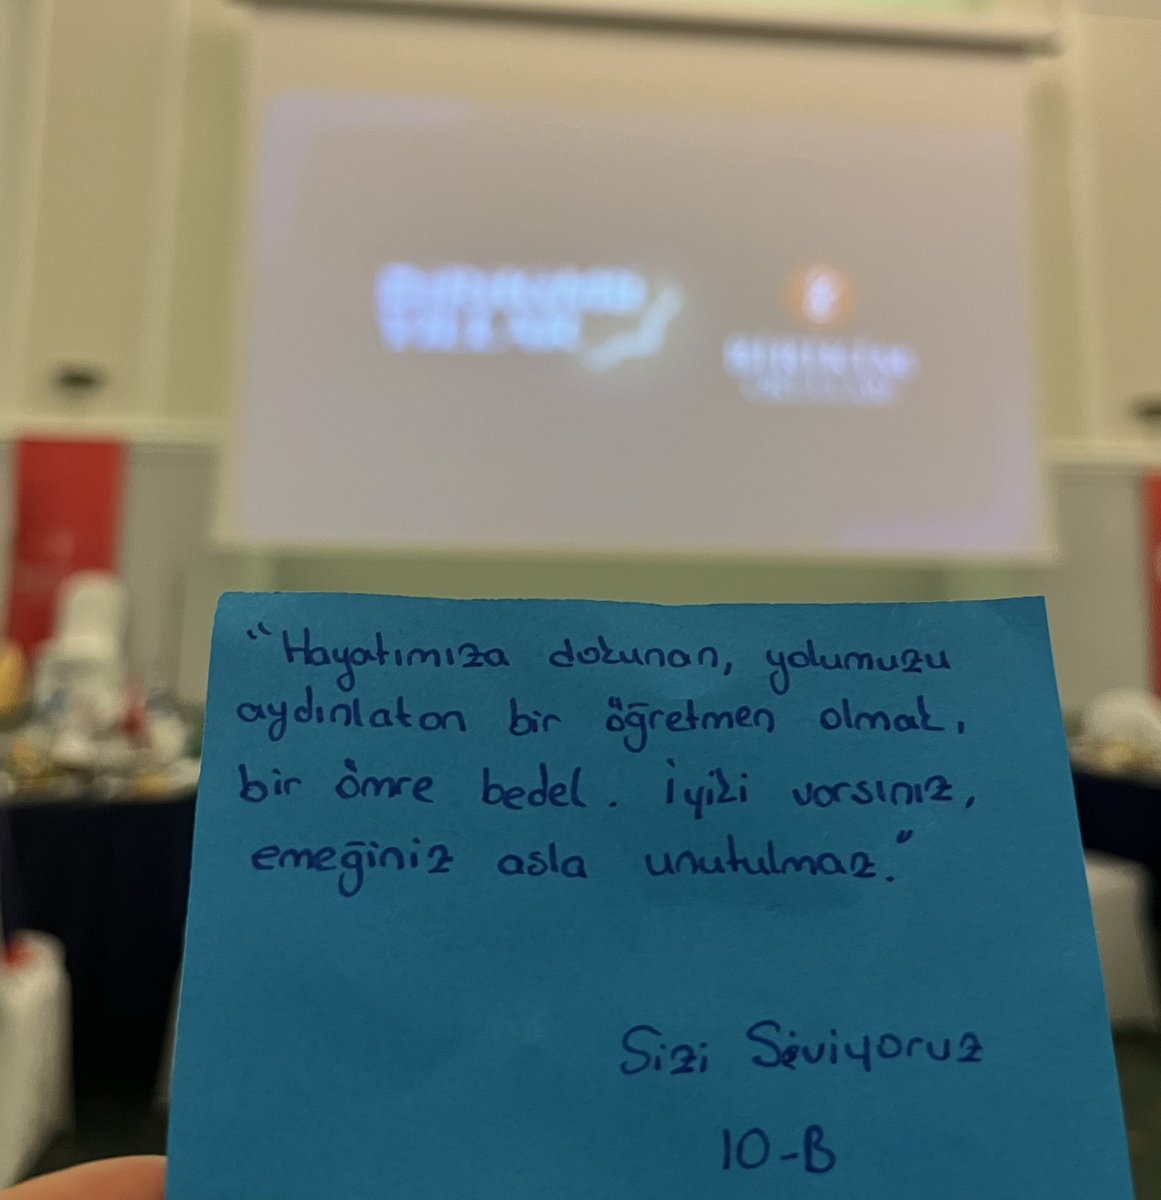 “Hayatımıza dokunan, yolumuzu
aydınlatan bir öğretmen olmak,
bir ömre bedel. İyiki varsınız,
emeğiniz asla unutulmaz.”
Sizi Seviyoruz
10-B